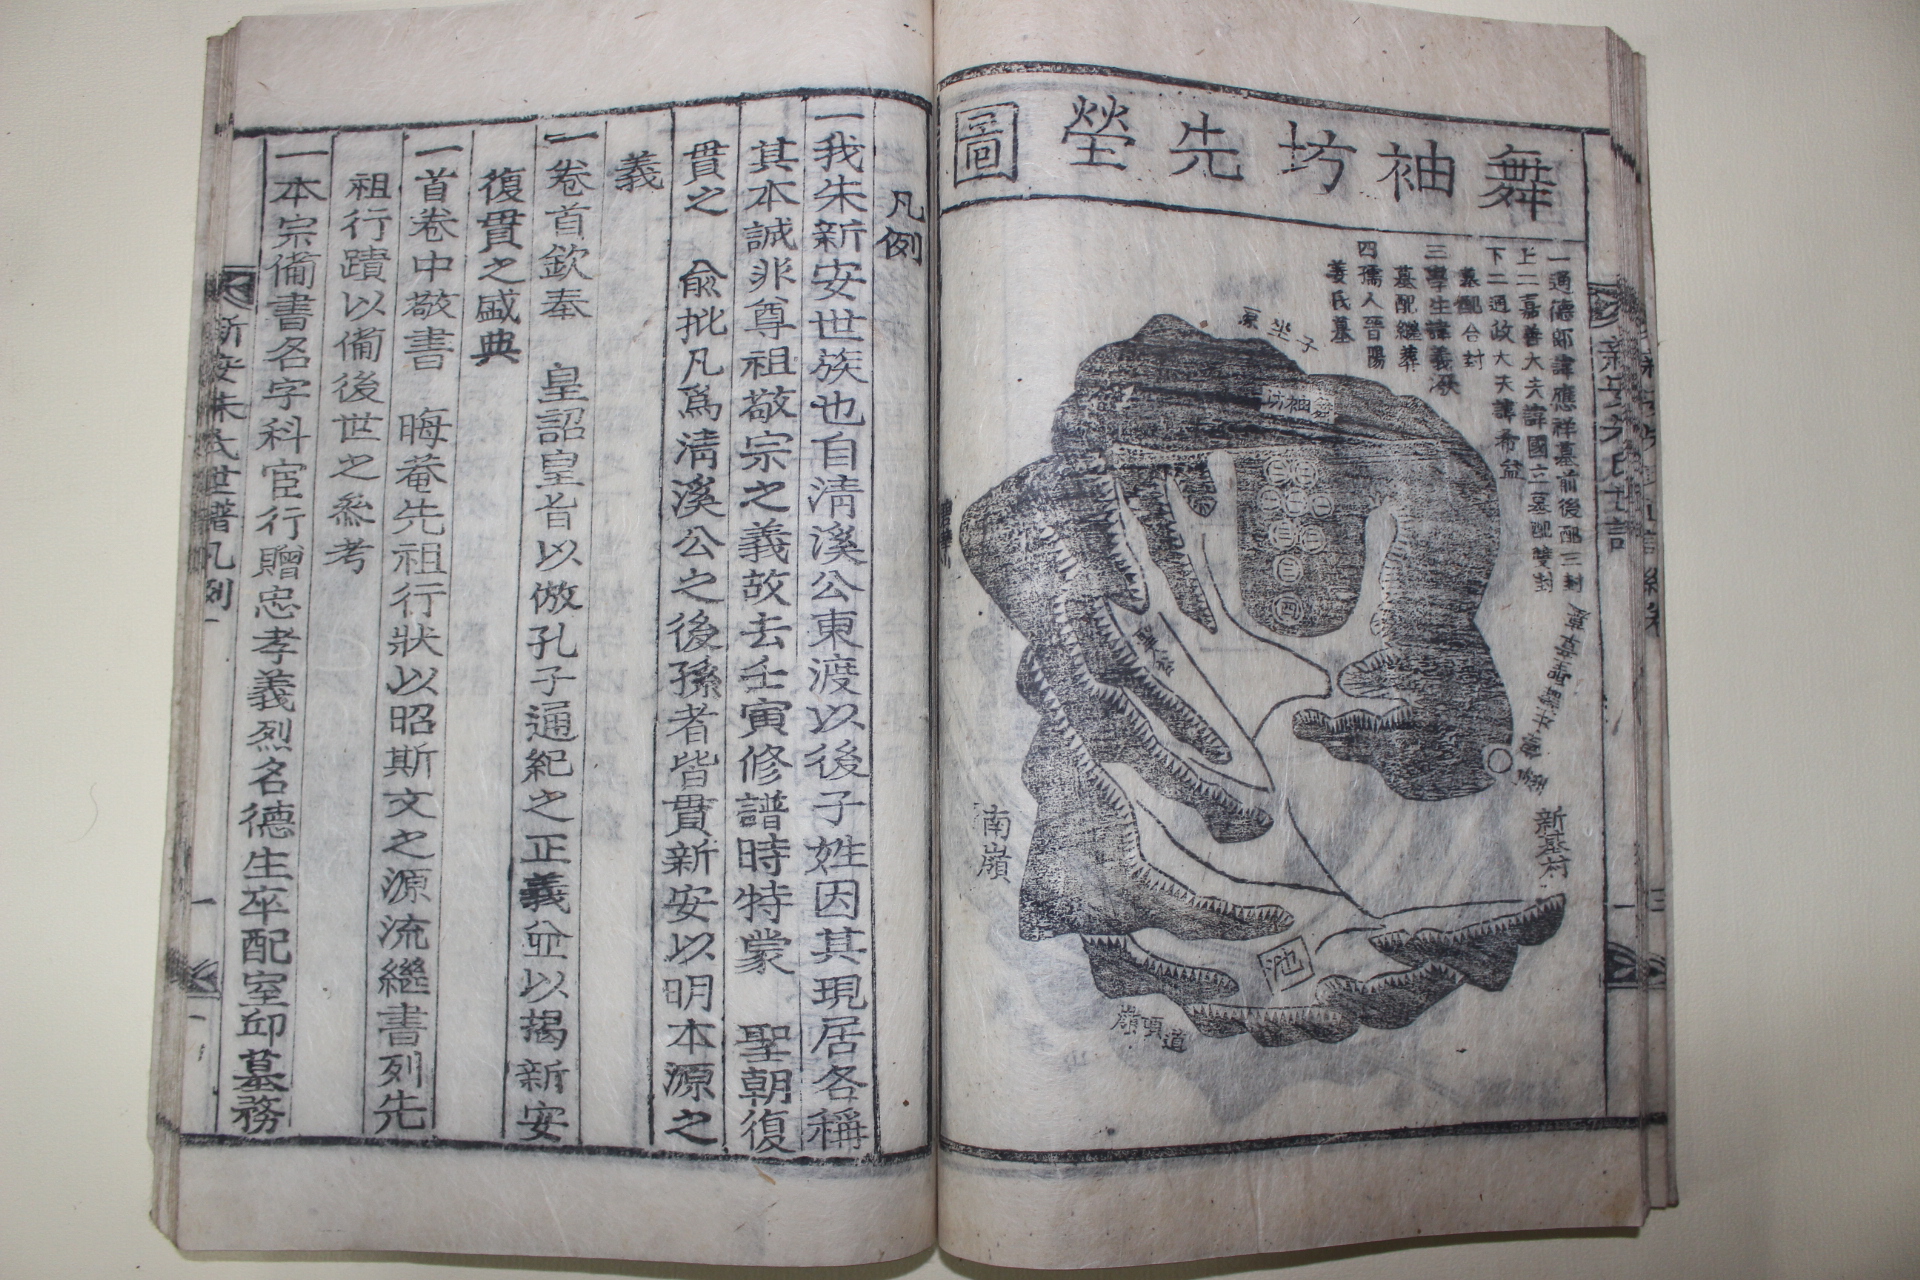 舞袖坊先塋圖
一通德郞諱應祥墓前後配三封
上二嘉善大夫諱國立墓配雙封
下二通政大夫諱希益
墓配合封
三學生諱義
墓配繼葬
四孺人晉陽
姜氏墓
子坐
舞袖坊
四
新基村
南嶺
池
道項嶺
凡例
一我朱新安世族也自淸溪公東渡以後子姓因其現居各稱
其本誠非尊祖敬宗之義故去壬寅修譜時特蒙 聖朝復
貫之 兪批凡爲淸溪公之後孫者皆貫新安以明本源之
義
一卷首欽奉 皇詔皇旨以倣孔子通紀之正義並以揭新安
復貫之盛典
一首卷中敬書 晦菴先祖行狀以昭斯文之源流繼書列先
祖行蹟以備後世之叅考
一本宗備書名字科宦行贈忠孝義烈名德生卒配室邱墓務
新安朱氏世譜凡例 一